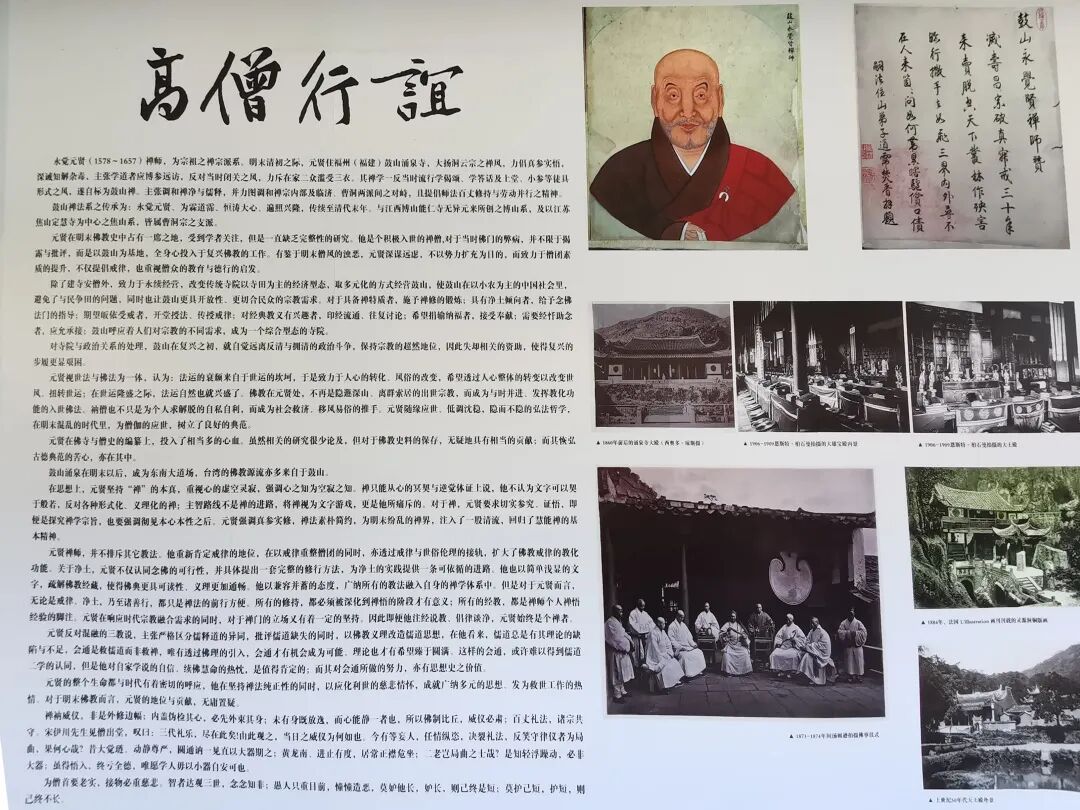 高僧行誼
永觉元贤（1578～1657）禅师，为宗祖之禅宗派系，明末清初之际，元贤住福州（福建）鼓山涌泉寺，大扬洞云宗之禅风，力倡真参实悟，
深诫知解杂毒，主张学道者应博参远访，反对当时闭关之风，力斥在家二众滥受三衣。其禅学一反当时流行学偈颂、学答话及学上堂、小参等徒具
形式之风，遂自标为鼓山禅。主张调和禅净与儒释，并力图调和禅宗内部及临济、曹洞两派间之对峙，且提倡师法百丈修持与劳动并行之精神。
鼓山禅法系之传承为：永觉元贤、为霖道霈、恒涛大心、遍照兴隆，传续至清代末年。与江西博山能仁寺无异元来所创之博山系，及以江苏
焦山定慧寺为中心之焦山系，皆属曹洞宗之支派。
元贤在明末佛教史中占有一席之地，受到学者关注，但是一直缺乏完整性的研究。他是个积极入世的禅僧,对于当时佛门的弊病，并不限于揭
露与批评，而是以鼓山为基地，全身心投入于复兴佛教的工作。有鉴于明末僧风的浊恶，元贤深谋远虑，不以势力扩充为目的，而致力于僧团素
质的提升，不仅提倡戒律，也重视僧众的教育与德行的启发。
除了建寺安僧外，致力于永续经营，改变传统寺院以寺田为主的经济型态，取多元化的方式经营鼓山，使鼓山在以小农为主的中国社会里，
避免了与民争田的问题，同时也让鼓山更具开放性、更切合民众的宗教需求。对于具备禅特质者，施予禅修的锻炼；具有净土倾向者，给予念佛
法门的指导；期望皈依受戒者，开堂授法、传授戒律；对经典教义有兴趣者，印经流通、往复讨论；希望捐输纳福者，接受奉献；需要经忏助念
者，应允承接；鼓山呼应着人们对宗教的不同需求，成为一个综合型态的寺院。
对寺院与政治关系的处理，鼓山在复兴之初，就自觉远离反清与拥清的政治斗争，保持宗教的超然地位，因此失却相关的资助，使得复兴的
步履更显艰困。
元贤视世法与佛法为一体，认为：法运的衰颓来自于世运的坎坷，于是致力于人心的转化、风俗的改变，希望透过人心整体的转变以改变世
风、扭转世运；在世运隆盛之际，法运自然也就兴盛了。佛教在元贤处，不再是隐遁深山、离群索居的出世宗教，而成为与时并进、发挥教化功
能的入世佛法。衲僧也不只是为个人求解脱的自私自利，而成为社会救济、移风易俗的推手。元贤随缘应世、低调沈稳、隐而不隐的弘法哲学，
在明末混乱的时代里，为僧伽的应世，树立了良好的典范。
元贤在佛寺与僧史的编纂上，投入了相当多的心血。虽然相关的研究很少论及，但对于佛教史料的保存，无疑地具有相当的贡献；而其恢弘
古德典范的苦心，亦在其中。
鼓山涌泉在明末以后，成为东南大道场，台湾的佛教源流亦多来自于鼓山。
在思想上，元贤坚持“禅”的本真，重视心的虚空灵寂，强调心之知为空寂之知。禅只能从心的冥契与逆觉体证上说，他不认为文字可以契
于般若，反对各种形式化、义理化的禅；主智路线不是禅的进路，将禅视为文字游戏，更是他所痛斥的。对于禅，元贤要求切实参究、证悟，即
便是探究禅学宗旨，也要强调彻见本心本性之后。元贤强调真参实修，禅法素朴简约，为明末纷乱的禅界，注入了一股清流，回归了慧能禅的基
本精神。
元贤禅师，并不排斥其它教法。他重新肯定戒律的地位，在以戒律重整僧团的同时，亦透过戒律与世俗伦理的接轨，扩大了佛教戒律的教化
功能。关于净土，元贤不仅认同念佛的可行性，并具体提出一套完整的修行方法，为净土的实践提供一条可依循的进路。他也以简单浅显的文
字，疏解佛教经藏，使得佛典更具可读性、义理更加通畅。他以兼容并蓄的态度，广纳所有的教法融入自身的禅学体系中。但是对于元贤而言，
无论是戒律、净土，乃至诸善行，都只是禅法的前行方便。所有的修持，都必须被深化到禅悟的阶段才有意义；所有的经教，都是禅师个人禅悟
经验的脚注。元贤在响应时代宗教融合需求的同时，对于禅门的立场又有着一定的坚持。因此即便他注经说教、倡律谈净，元贤始终是个禅者。
元贤反对混融的三教说，主张严格区分儒释道的异同，批评儒道缺失的同时，以佛教义理改造儒道思想，在他看来，儒道总是有其理论的缺
陷与不足，会通是救儒道而非救禅，唯有透过佛理的引入，会通才有机会成为可能，理论也才有希望臻于圆满。这样的会通，或许难以得到儒道
二学的认同，但是他对自家学说的自信、续佛慧命的热忱，是值得肯定的；而其对会通所做的努力，亦有思想史之价值。
元贤的整个生命都与时代有着密切的呼应，他在坚持禅法纯正性的同时，以应化利世的慈悲情怀，成就广纳多元的思想、发为救世工作的热
情。对于明末佛教而言，元贤的地位与贡献，无庸置疑。
禅衲威仪，非是外修边幅；内盖伪检其心，必先外束其身；未有身既放逸，而心能静一者也，所以佛制比丘，威仪必肃；百丈礼法，诸宗共
守。宋伊川先生见僧出堂，叹曰：三代礼乐，尽在此矣!由此观之，当日之威仪为何如也。今有等妄人，任情纵恣，决裂礼法，反笑守律仪者为局
曲，果何心哉？昔大觉琏，动静尊严，圆通讷一见直以大器期之；黄龙南、进止有度，居常正襟危坐；二老岂局曲之士哉？是知轻浮躁动，必非
大器；虽得悟入，终亏全德，唯愿学人毋以小器自安可也。
为僧首要老实，接物必重慈悲。智者达观三世，念念知非；愚人只重目前，憧憧造恶，莫妒他长，妒长，则己终是短；莫护己短，护短，则
己终不长。
鼓山永覺賢禅师
鼓山永覺賢禅師賛
滅壽昌宗破真寂戒三十年
来賣脱空天下叢林作殃害
臨行撒手
在人来
▲ 1860年前后的涌泉寺大殿
▲ 1906-1909恩斯特·柏石曼拍摄的大雄宝殿内景
▲ 1906-1909恩斯特·柏石曼拍摄的天王殿
▲ 1873-1874年间汤姆逊拍摄佛事仪式
▲ 1884年，法国L'Illustration画刊刊载的灵源洞铜版画
▲ 上世纪30年代天王殿外景